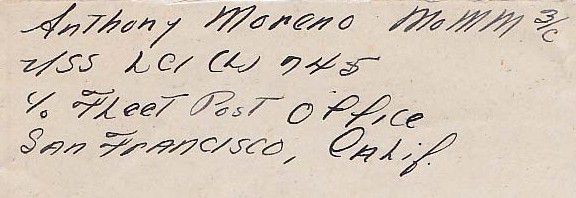 Anthony Moreno MoMM 3/c
USS LCI (L) 745
c/o Fleet Post Office
San Francisco, Calif.